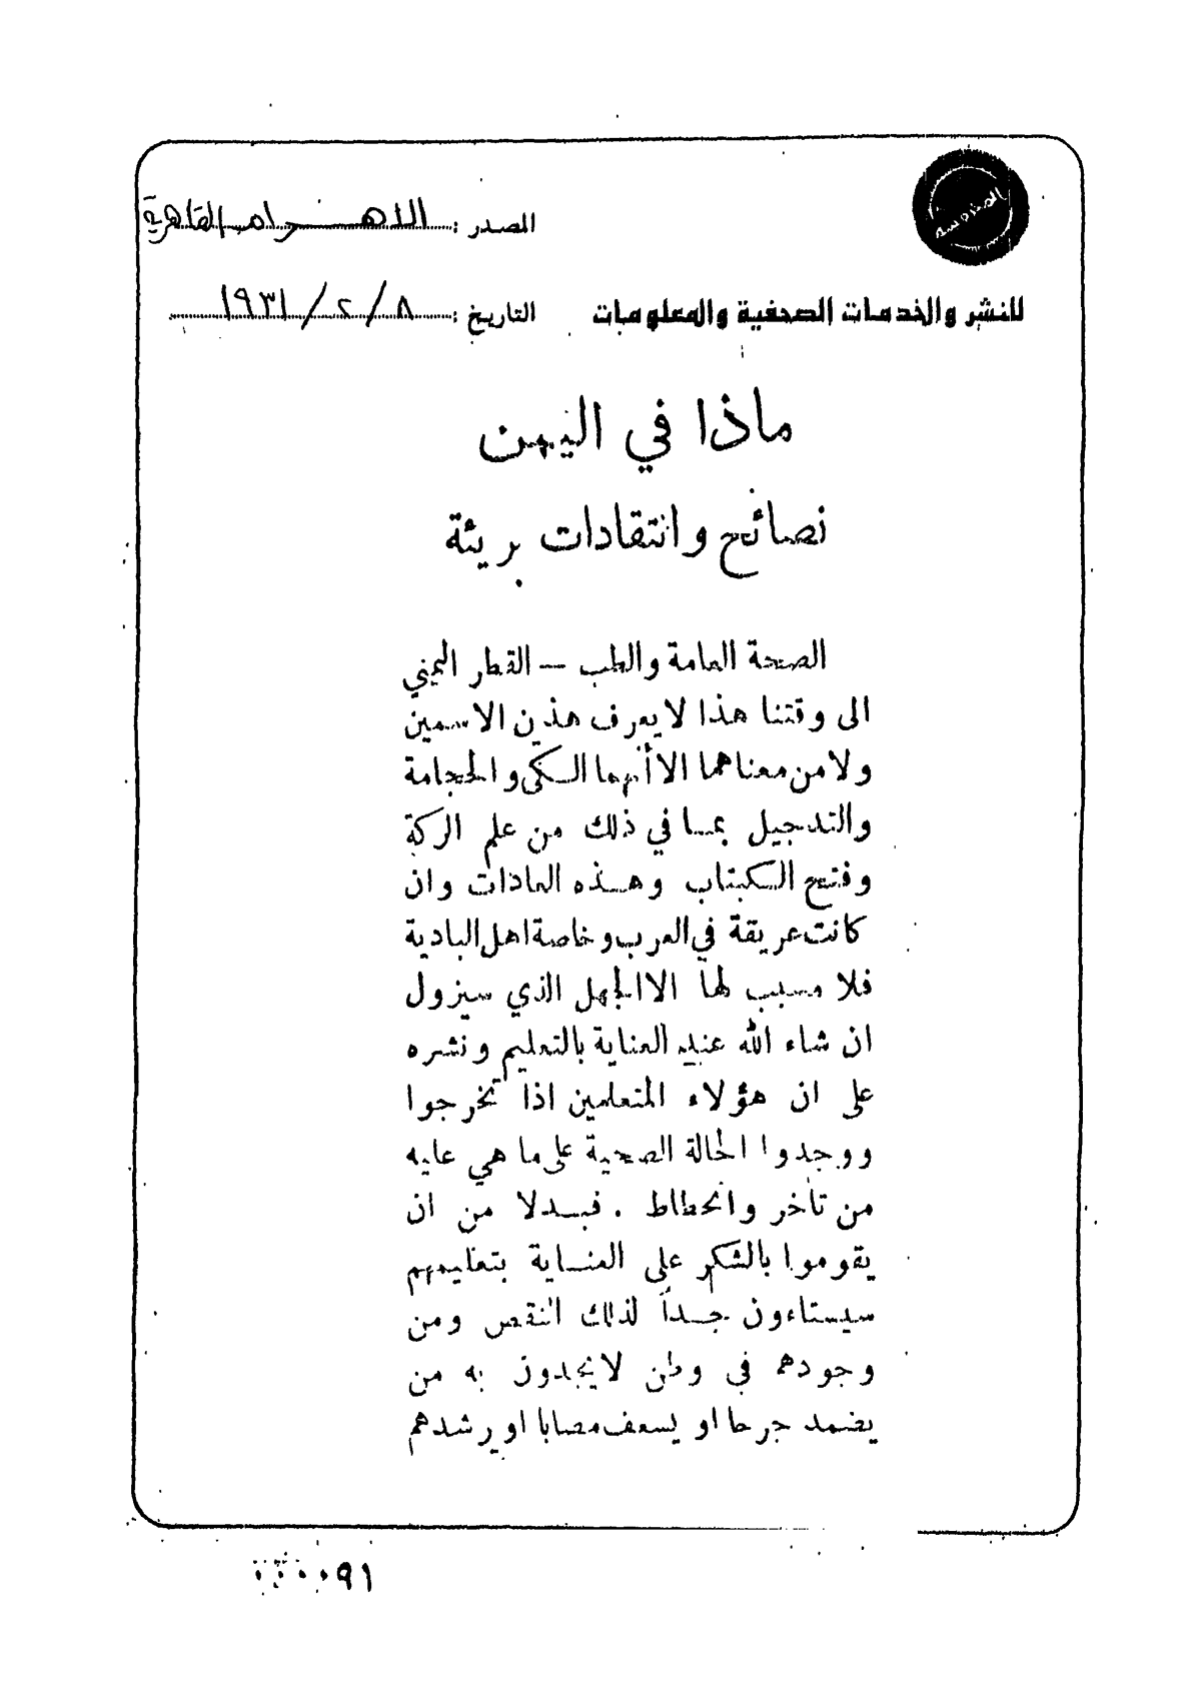 المحروسة
المصدر : الاهرام القاهرية
للنشر والخدمات الصحفية والمعلومات
التاريخ : ٨ / ٢ / ١٩٣١
ماذا في اليمن
نصائح وانتقادات بريئة
الصحة العامة والطب — القطر اليمني
الى وقتنا هذا لا يعرف هذين الاسمين
ولا من معناهما الا أنهما الكي والحجامة
والتدجيل بما في ذلك من علم الركة
وفتح الكتاب وهذه العادات وان
كانت عريقة في العرب وخاصة اهل البادية
فلا مسبب لها الا الجهل الذي سيزول
ان شاء الله عند العناية بالتعليم ونشره
على ان هؤلاء المتعلمين اذا تخرجوا
ووجدوا الحالة الصحية على ما هي عليه
من تأخر وانحطاط . فبدلا من ان
يقوموا بالشكر على العناية بتعليمهم
سيستاءون جداً لذلك النقص ومن
وجودهم في وطن لا يجدون به من
يضمد جرحا او يسعف مصابا او يرشدهم
٩١